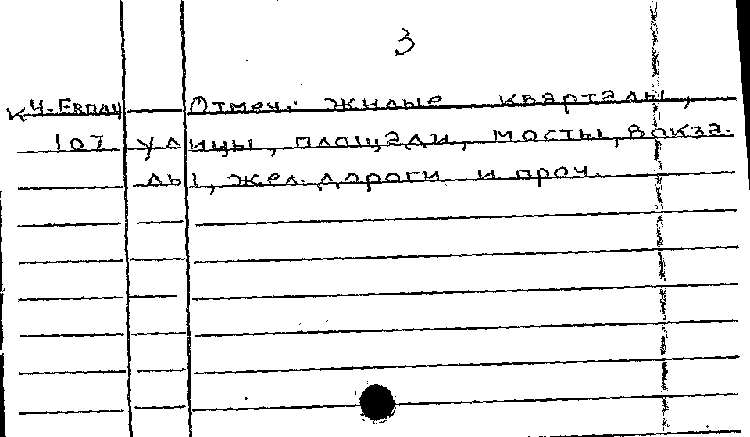 3
КЧ-Евпац Отмеч.: жилые кварталы,
107 улицы, площади, мосты, вокза-
лы, жел. дороги и проч.